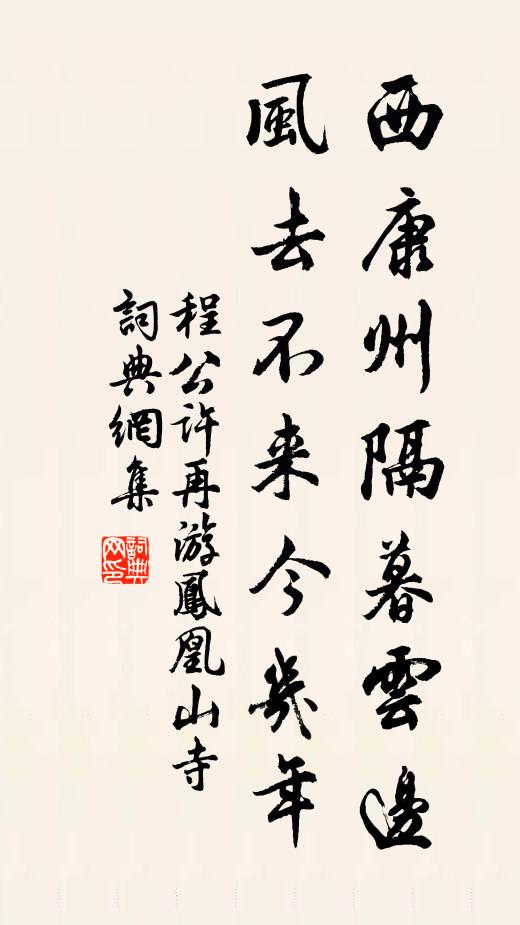 西康州隔暮雲邊
風去不来今幾年
程公許再游鳳凰山寺
詞典網集
詞典
网印